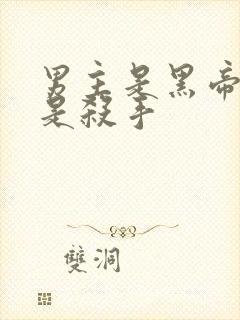 男主是黑帝
是殺手
雙洞